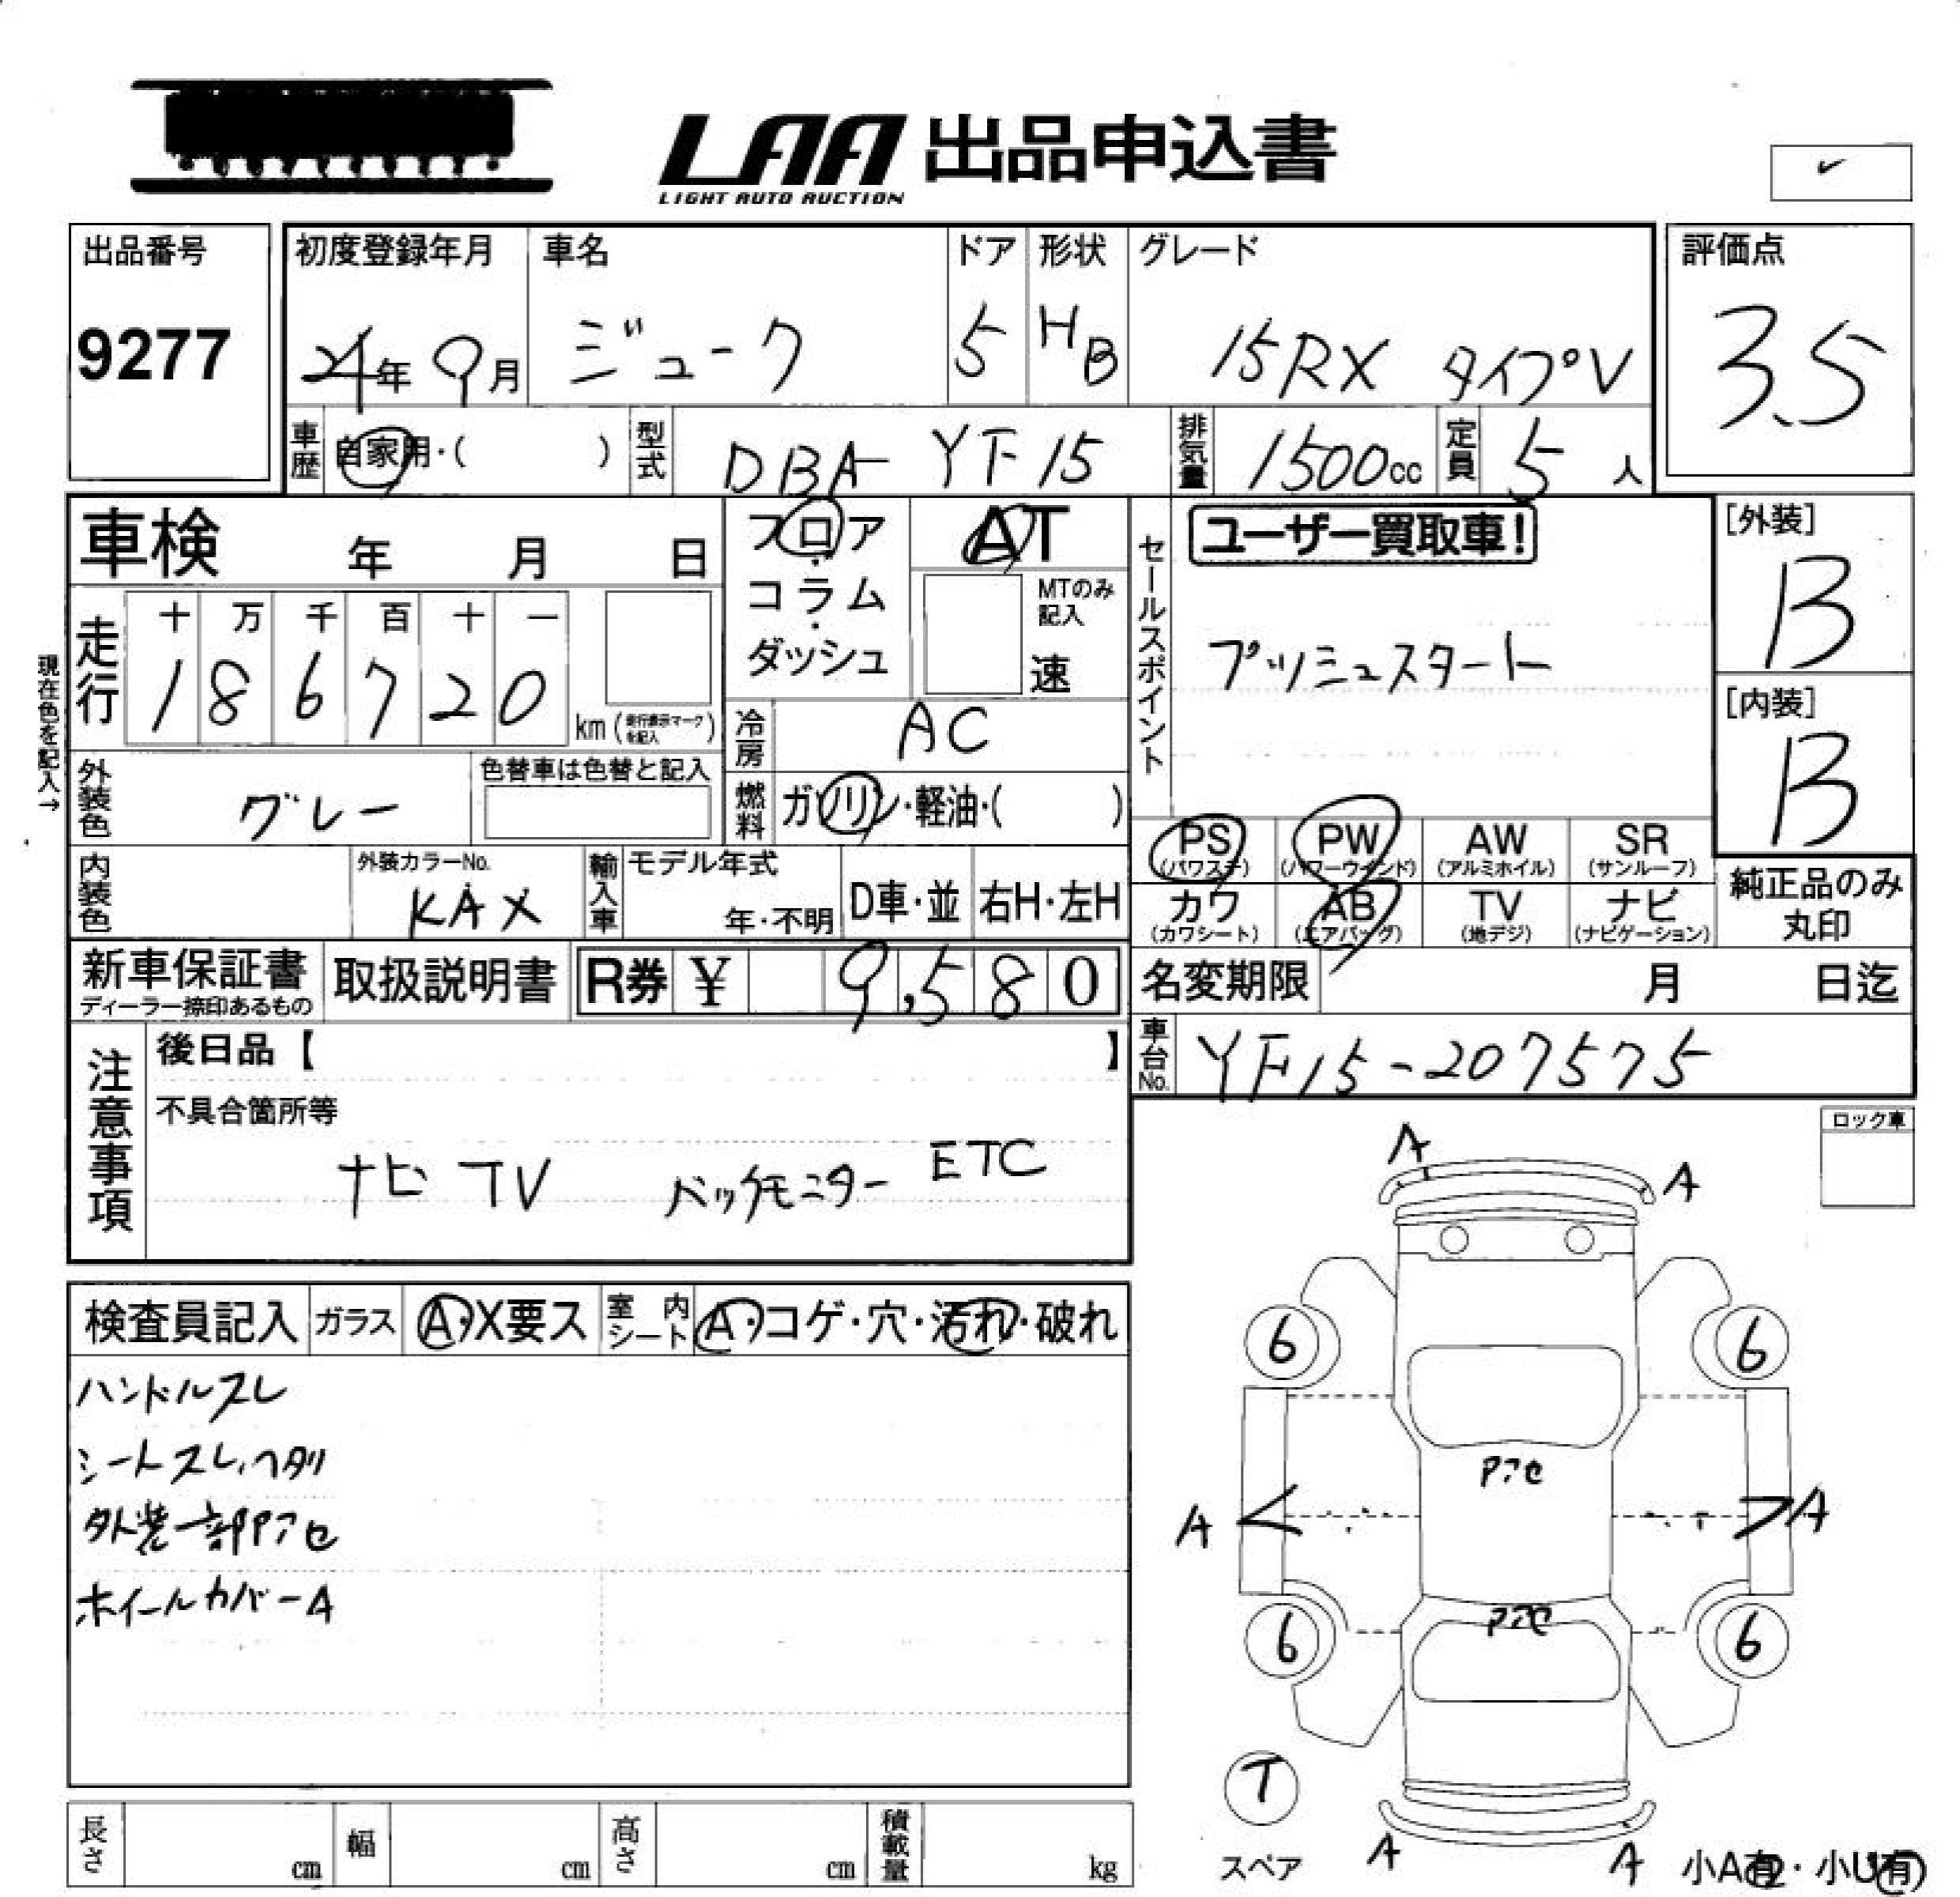 LAA 出品申込書
LIGHT AUTO AUCTION
出品番号
9277
初度登録年月
24年 9月
車名
ジューク
ドア
5
形状
HB
グレード
15RX タイプV
評価点
3.5
車歴
自家用・( )
型式
DBA YF15
排気量
1500cc
定員
5人
車検 年 月 日
フロア・コラム・ダッシュ
AT
MTのみ記入
速
セールスポイント
ユーザー買取車!
プッシュスタート
[外装]
B
[内装]
B
現在色を記入→
走行
十 万 千 百 十 一
1 8 6 7 2 0
km (走行表示マークを記入)
冷房
AC
外装色
グレー
色替車は色替と記入
燃料
ガソリン・軽油・( )
PS (パワステ)
PW (パワーウインド)
AW (アルミホイル)
SR (サンルーフ)
カワ (カワシート)
AB (エアバッグ)
TV (地デジ)
ナビ (ナビゲーション)
純正品のみ丸印
内装色
外装カラーNo.
KAX
輸入車
モデル年式
年・不明
D車・並
右H・左H
新車保証書
ディーラー捺印あるもの
取扱説明書
R券 ¥ 9,580
名変期限 月 日迄
車台No.
YF15-207575
注意事項
後日品【 】
不具合箇所等
ナビ TV バックモニター ETC
ロック車
検査員記入
ガラス
A・X要ス
室内シート
A・コゲ・穴・汚れ・破れ
ハンドルスレ
シートスレ、ヘタリ
外装一部Pアセ
ホイールカバーA
A
A
6
6
Pアセ
A
A
Pアセ
6
6
T
スペア
A
A
小A有・小U有
長さ cm
幅 cm
高さ cm
積載量 kg